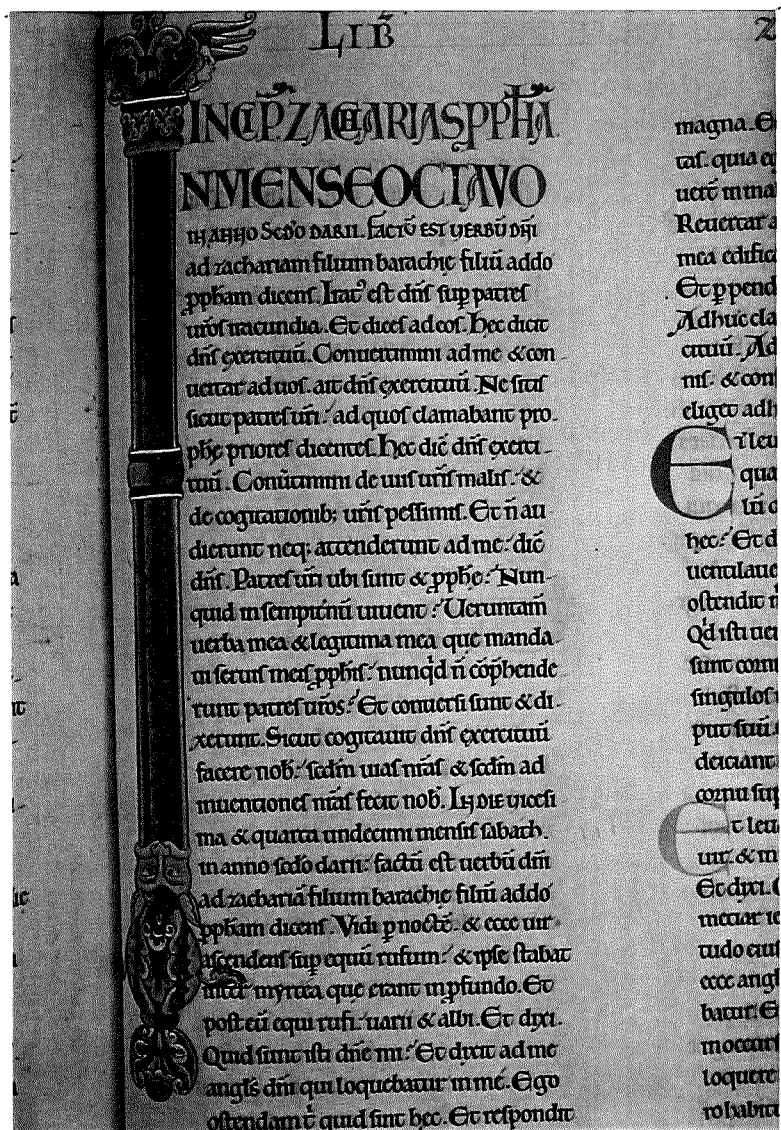 LIB̄
INCIP̄. ZACHARIAS PP̄HA
IN MENSE OCTAVO
IN ANNO SEDO DARII. FACTŪ EST VERBŪ DÑI
ad zachariam filium barachię filiū addo
ꝓpham dicens. Irat᾽ est dn̄s sup patres
uros iracundia. Et dices ad eos. Hec dicit
dn̄s exercituū. Conuertimini ad me & con
uertar ad uos. ait dn̄s exercituū. Ne sitis
sicut patres ur̄i. ad quos clamabant pro
phę priores dicentes. Hec dic̄ dn̄s exerci
tuū. Conūtimini de uiis ur̄is malis. &
de cogitationib; ur̄is pessimis. Et n̄ au
dierunt neq; attenderunt ad me. dic̄
dn̄s. Patres ur̄i ubi sunt & ꝓphę. Nun
quid in sempit̄nū uiuent. Ueruntam̄
uerba mea & legitima mea que manda
ui seruis meis ꝓphis. nunqd n̄ cōp̄hende
runt patres ur̄os. Et conuersi sunt & di
xerunt. Sicut cogitauit dn̄s exercituū
facere nob̄. scd̄m uias nr̄as & scd̄m ad
inuentiones nr̄as fecit nob̄. IN DIE vicesi
ma & quarta undecimi mensis sabath.
in anno scd̄o darii. factū est uerbū dn̄i
ad zachariā filium barachię filiū addo
ꝓpham dicens. Vidi p noctē. & ecce uir
ascendens sup equū rufum. & ipse stabat
inter myrteta que erant in ꝓfundo. Et
post eū equi rufi. uarii & albi. Et dixi.
Quid sunt isti dn̄e mi. Et dixit ad me
angl̄s dn̄i qui loquebatur in me. Ego
ostendam t̄ quid sint hec. Et respondit
magna. E
tas. quia
uert̄ in ma
Reuertar a
mea edifica
Et ꝑpend
Adhuc cla
cituū. Ad
nis. & con
eliget adh
Et leu
qua
hec. Et d
uentilaue
ostendit
Qd isti uei
sunt cornu
singulos
put suū.
deiciant
cornu sup
Et leu
uir. & m
Et dixi.
metiar ie
tudo eius
ecce angl
batur. E
in occurs
loquere
ro habita